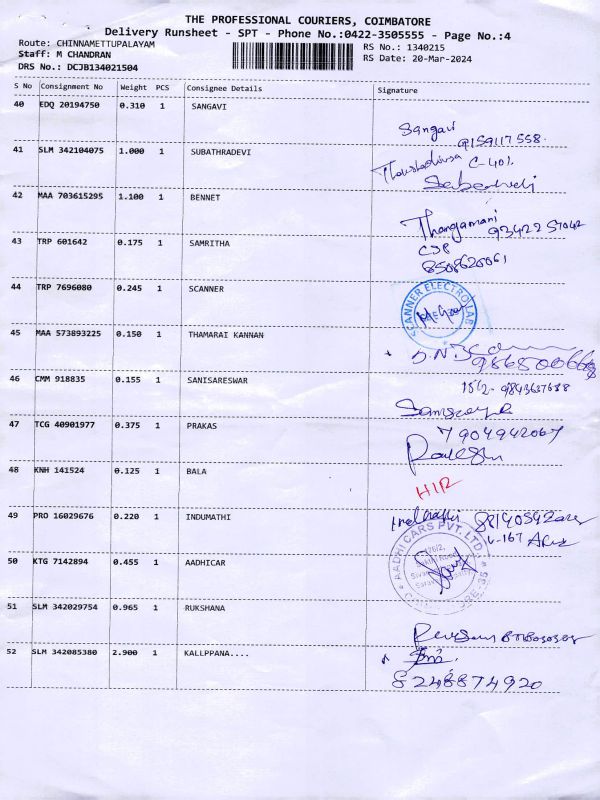 THE PROFESSIONAL COURIERS, COIMBATORE
Delivery Runsheet - SPT - Phone No.:0422-3505555 - Page No.:4
Route: CHINNAMETTUPALAYAM
RS No.: 1340215
Staff: M CHANDRAN
RS Date: 20-Mar-2024
DRS No.: DCJB134021504
S No Consignment No Weight PCS Consignee Details Signature
40 EDQ 20194750 0.310 1 SANGAVI
Sangavi
9159117558.
41 SLM 342104075 1.000 1 SUBATHRADEVI
C-401
42 MAA 703615295 1.100 1 BENNET
Thangamani
43 TRP 601642 0.175 1 SAMRITHA
8508620061
44 TRP 7696080 0.245 1 SCANNER
SCANNER ELECTRO LAB
45 MAA 573893225 0.150 1 THAMARAI KANNAN
46 CMM 918835 0.155 1 SANISARESWAR
47 TCG 40901977 0.375 1 PRAKAS
7904942067
48 KNH 141524 0.125 1 BALA
HIR
49 PRO 16029676 0.220 1 INDUMATHI
50 KTG 7142894 0.455 1 AADHICAR
AADHI CARS PVT. LTD
51 SLM 342029754 0.965 1 RUKSHANA
52 SLM 342085380 2.900 1 KALLPPANA....
8248874920